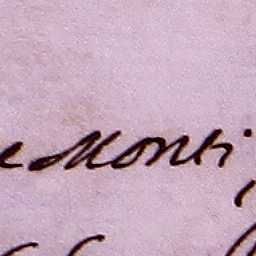 e Monti,